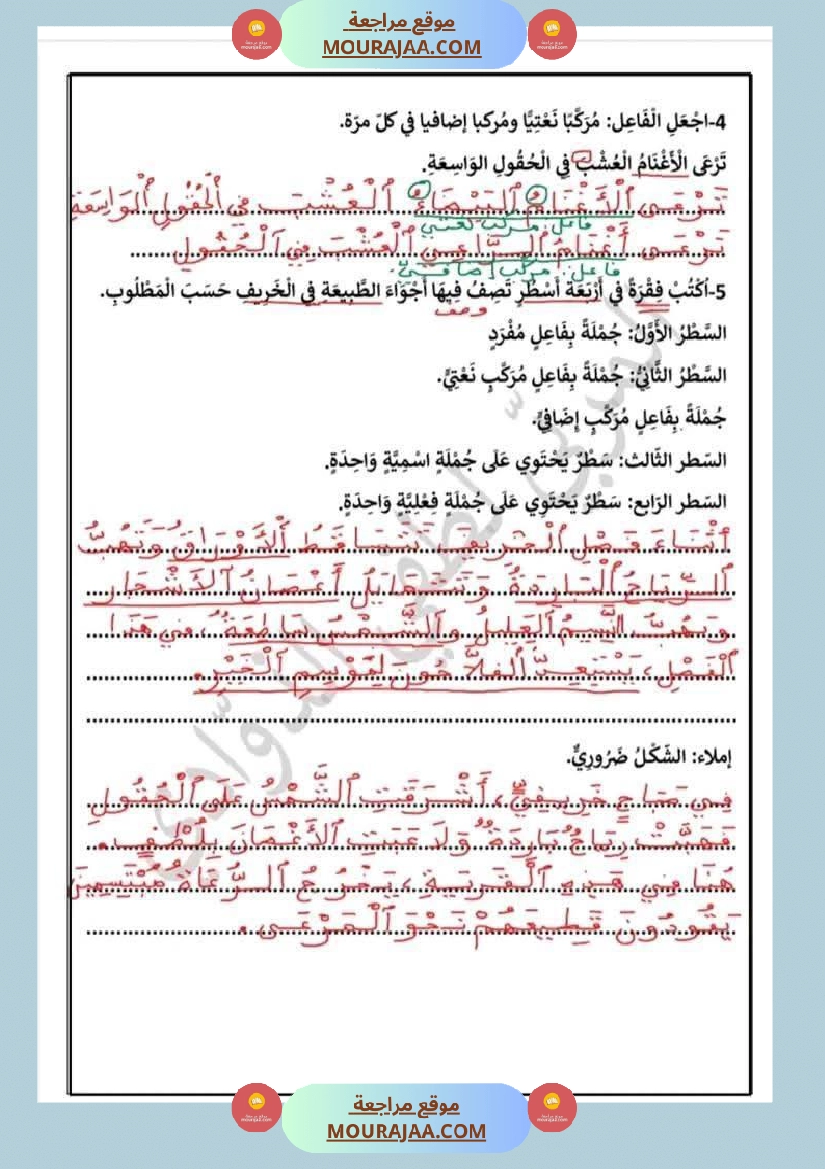 موقع مراجعة
MOURAJAA.COM
4-اجْعَلِ الْفَاعِل: مُرَكَّبًا نَعْتِيًّا ومُركبا إضافيا في كلّ مرّة.
تَرْعَى الْأَغْنَامُ الْعُشْبَ فِي الْحُقُولِ الوَاسِعَةِ.
تَرْعَى الْأَغْنَامُ الْبَيْضَاءُ الْعُشْبَ فِي الْحُقُولِ الْوَاسِعَةِ
فاعل: مركب نعتي
تَرْعَى أَغْنَامُ الرَّاعِي الْعُشْبَ فِي الْحُقُولِ
فاعل: مركب إضافيّ
5-اُكْتُبْ فِقْرَةً في أَرْبَعَة أَسْطُرٍ تَصِفُ فِيهَا أَجْوَاءَ الطَّبِيعَةِ فِي الْخَرِيفِ حَسَبَ الْمَطْلُوبِ.
وصف
السَّطْرُ الأَوَّلُ: جُمْلَةً بِفَاعِلٍ مُفْرَدٍ
السَّطْرُ الثَّانِيُّ: جُمْلَةً بِفَاعِلٍ مُرَكَّبٍ نَعْتِيٍّ.
جُمْلَةً بِفَاعِلٍ مُرَكَّبٍ إِضَافِيٍّ.
السّطر الثّالث: سَطْرٌ يَحْتَوِي عَلَى جُمْلَةٍ اسْمِيَّةٍ وَاحِدَةٍ.
السّطر الرّابع: سَطْرٌ يَحْتَوِي عَلَى جُمْلَةٍ فِعْلِيَّةٍ وَاحِدَةٍ.
أَثْنَاءَ فَصْلِ الْخَرِيفِ تَتَسَاقَطُ الْأَوْرَاقُ وَتَهُبُّ
الرِّيَاحُ الْبَارِدَةُ وَتَتَمَايَلُ أَغْصَانُ الْأَشْجَارِ
وَيَهُبُّ النَّسِيمُ الْعَلِيلُ وَالشَّمْسُ سَاطِعَةٌ، فِي هَذَا
الْفَصْلِ، يَسْتَعِدُّ الْفَلاَّحُونَ لِمَوْسِمِ الْخَيْرِ.
إملاء: الشَكْلُ ضَرُورِيٌّ.
فِي صَبَاحٍ خَرِيفِيٍّ، أَشْرَقَتِ الشَّمْسُ عَلَى الْحُقُولِ
فَهَبَّتْ رِيَاحٌ بَارِدَةٌ وَلَاعَبَتِ الْأَغْصَانَ بِلُطْفٍ.
هُنَا فِي هَذِهِ الْقَرْيَةِ، يَخْرُجُ الرُّعَاةُ مُبْتَسِمِينَ
يَقُودُونَ قَطِيعَهُمْ نَحْوَ الْمَرْعَى.
موقع مراجعة
MOURAJAA.COM